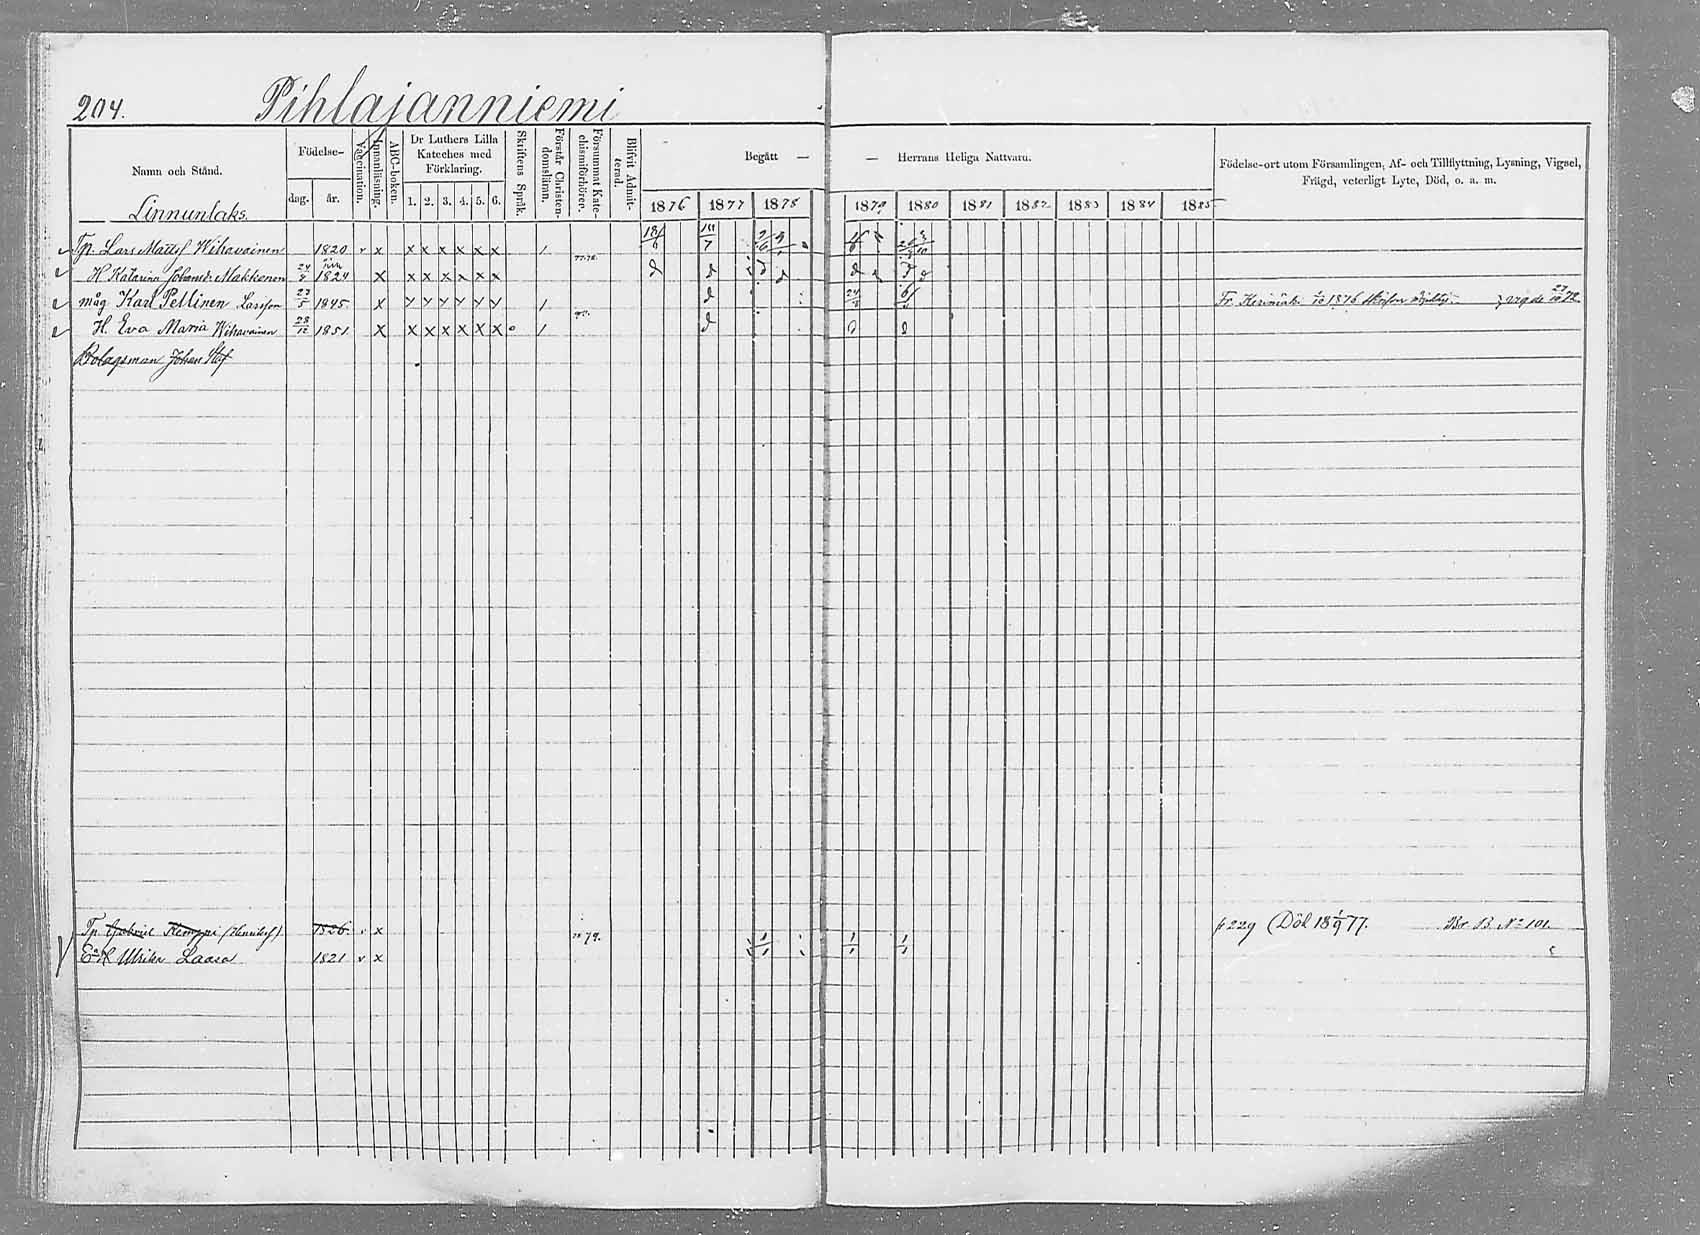 204. Pihlajanniemi
Namn och Stånd. Födelse- dag. år. Vaccination. Innanläsning. ABC-boken. Dr Luthers Lilla Kateches med Förklaring. 1. 2. 3. 4. 5. 6. Skriftens Språk. Förstår Christendomsläran. Försummat Katechismiförhörer. Blifvit Admitterad. Begått — — Herrans Heliga Nattvard. Födelse-ort utom Församlingen, Af- och Tillflyttning, Lysning, Vigsel, Frägd, veterligt Lyte, Död, o. a. m.
1876 1877 1878 1879 1880 1881 1882 1883 1884 1885
Linnunlaks.
Tp. Lars Mattss Wihavainen 1820 v x x x x x x x 1 18/6
H. Katarina Johansdr Makkonen 24/4 1824 x x x x x x x 77.78. d d d d d d d d
måg Karl Pellinen Larsson 23/5 1845 x 1 d 24/5 Fr. Kerimäki 1876
H. Eva Maria Wihavainen 23/12 1851 x x x x x x x o 1 d d d
Bolagsman Johan
Tp. Gabriel Kemppi (Henriksf) 1826. v x 79. p 229 (Död 18 1/9 77. Br. B. No 101.
E. H Ulrika Laasa 1821 v x 1/1 1/1 1/1